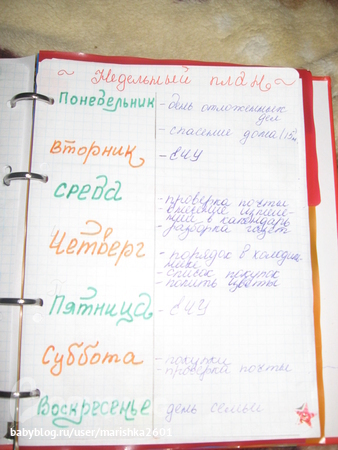 ~ Недельный план ~
Понедельник - день отложенных
дел
- спасение дома (15м
Вторник - ЕЧУ
среда - проверка почты
- внесение измене-
ний в календарь
- разборка газет
Четверг - порядок в холодиль-
нике
- список покупок
- полить цветы
Пятница - ЕЧУ
Суббота - покупки
- проверка почты
Воскресенье - день семьи
babyblog.ru/user/marishka2601